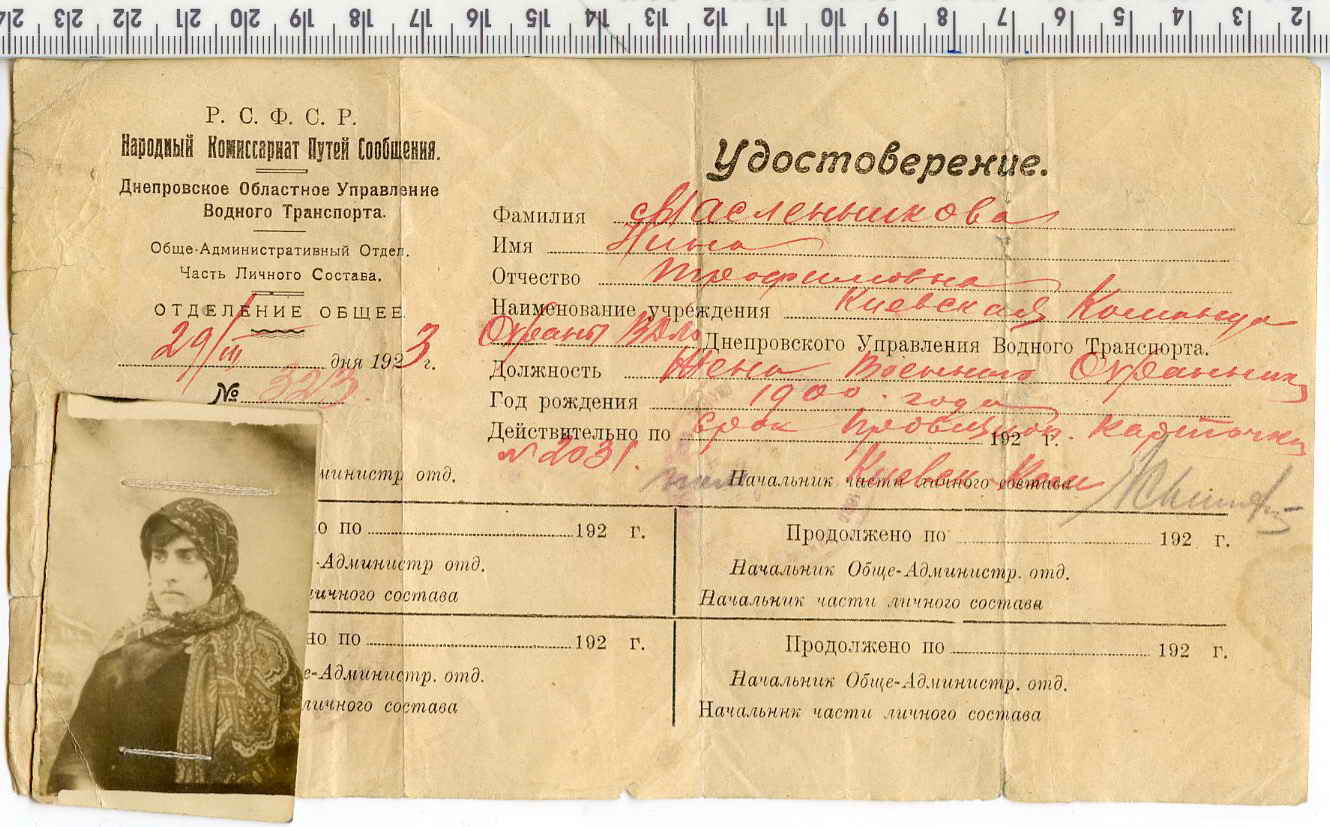 24 23 22 21 20 19 18 17 16 15 14 13 12 11 10 9 8 7 6 5 4 3 2
Р. С. Ф. С. Р.
Народный Комиссариат Путей Сообщения.
Днепровское Областное Управление
Водного Транспорта.
Обще-Административный Отдел.
Часть Личного Состава.
ОТДЕЛЕНИЕ ОБЩЕЕ.
29/III дня 1923 г.
№ 323.
Удостоверение.
Фамилия Масленникова
Имя Нина
Отчество Трофимовна
Наименование учреждения Киевская Команда
Охраны Днепровского Управления Водного Транспорта.
Должность Жена Военного Охранника
Год рождения 1900 года
Действительно по срок 192 г. карточки
№ 2031.
министр отд.
Начальник части личного состава
Киевск. Ком
о по 192 г.
-Администр отд.
личного состава
Продолжено по 192 г.
Начальник Обще-Администр. отд.
Начальник части личного состава
но по 192 г.
е-Администр. отд.
личного состава
Продолжено по 192 г.
Начальник Обще-Администр. отд.
Начальник части личного состава